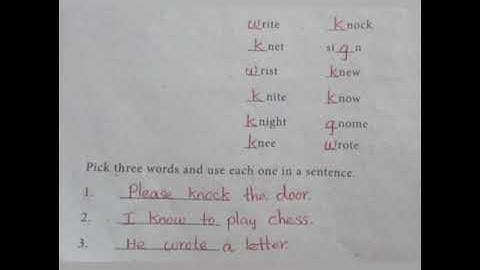 write knock
knet sign
wrist knew
knite know
knight gnome
knee wrote
Pick three words and use each one in a sentence.
1. Please knock the door.
2. I know to play chess.
3. He wrote a letter.